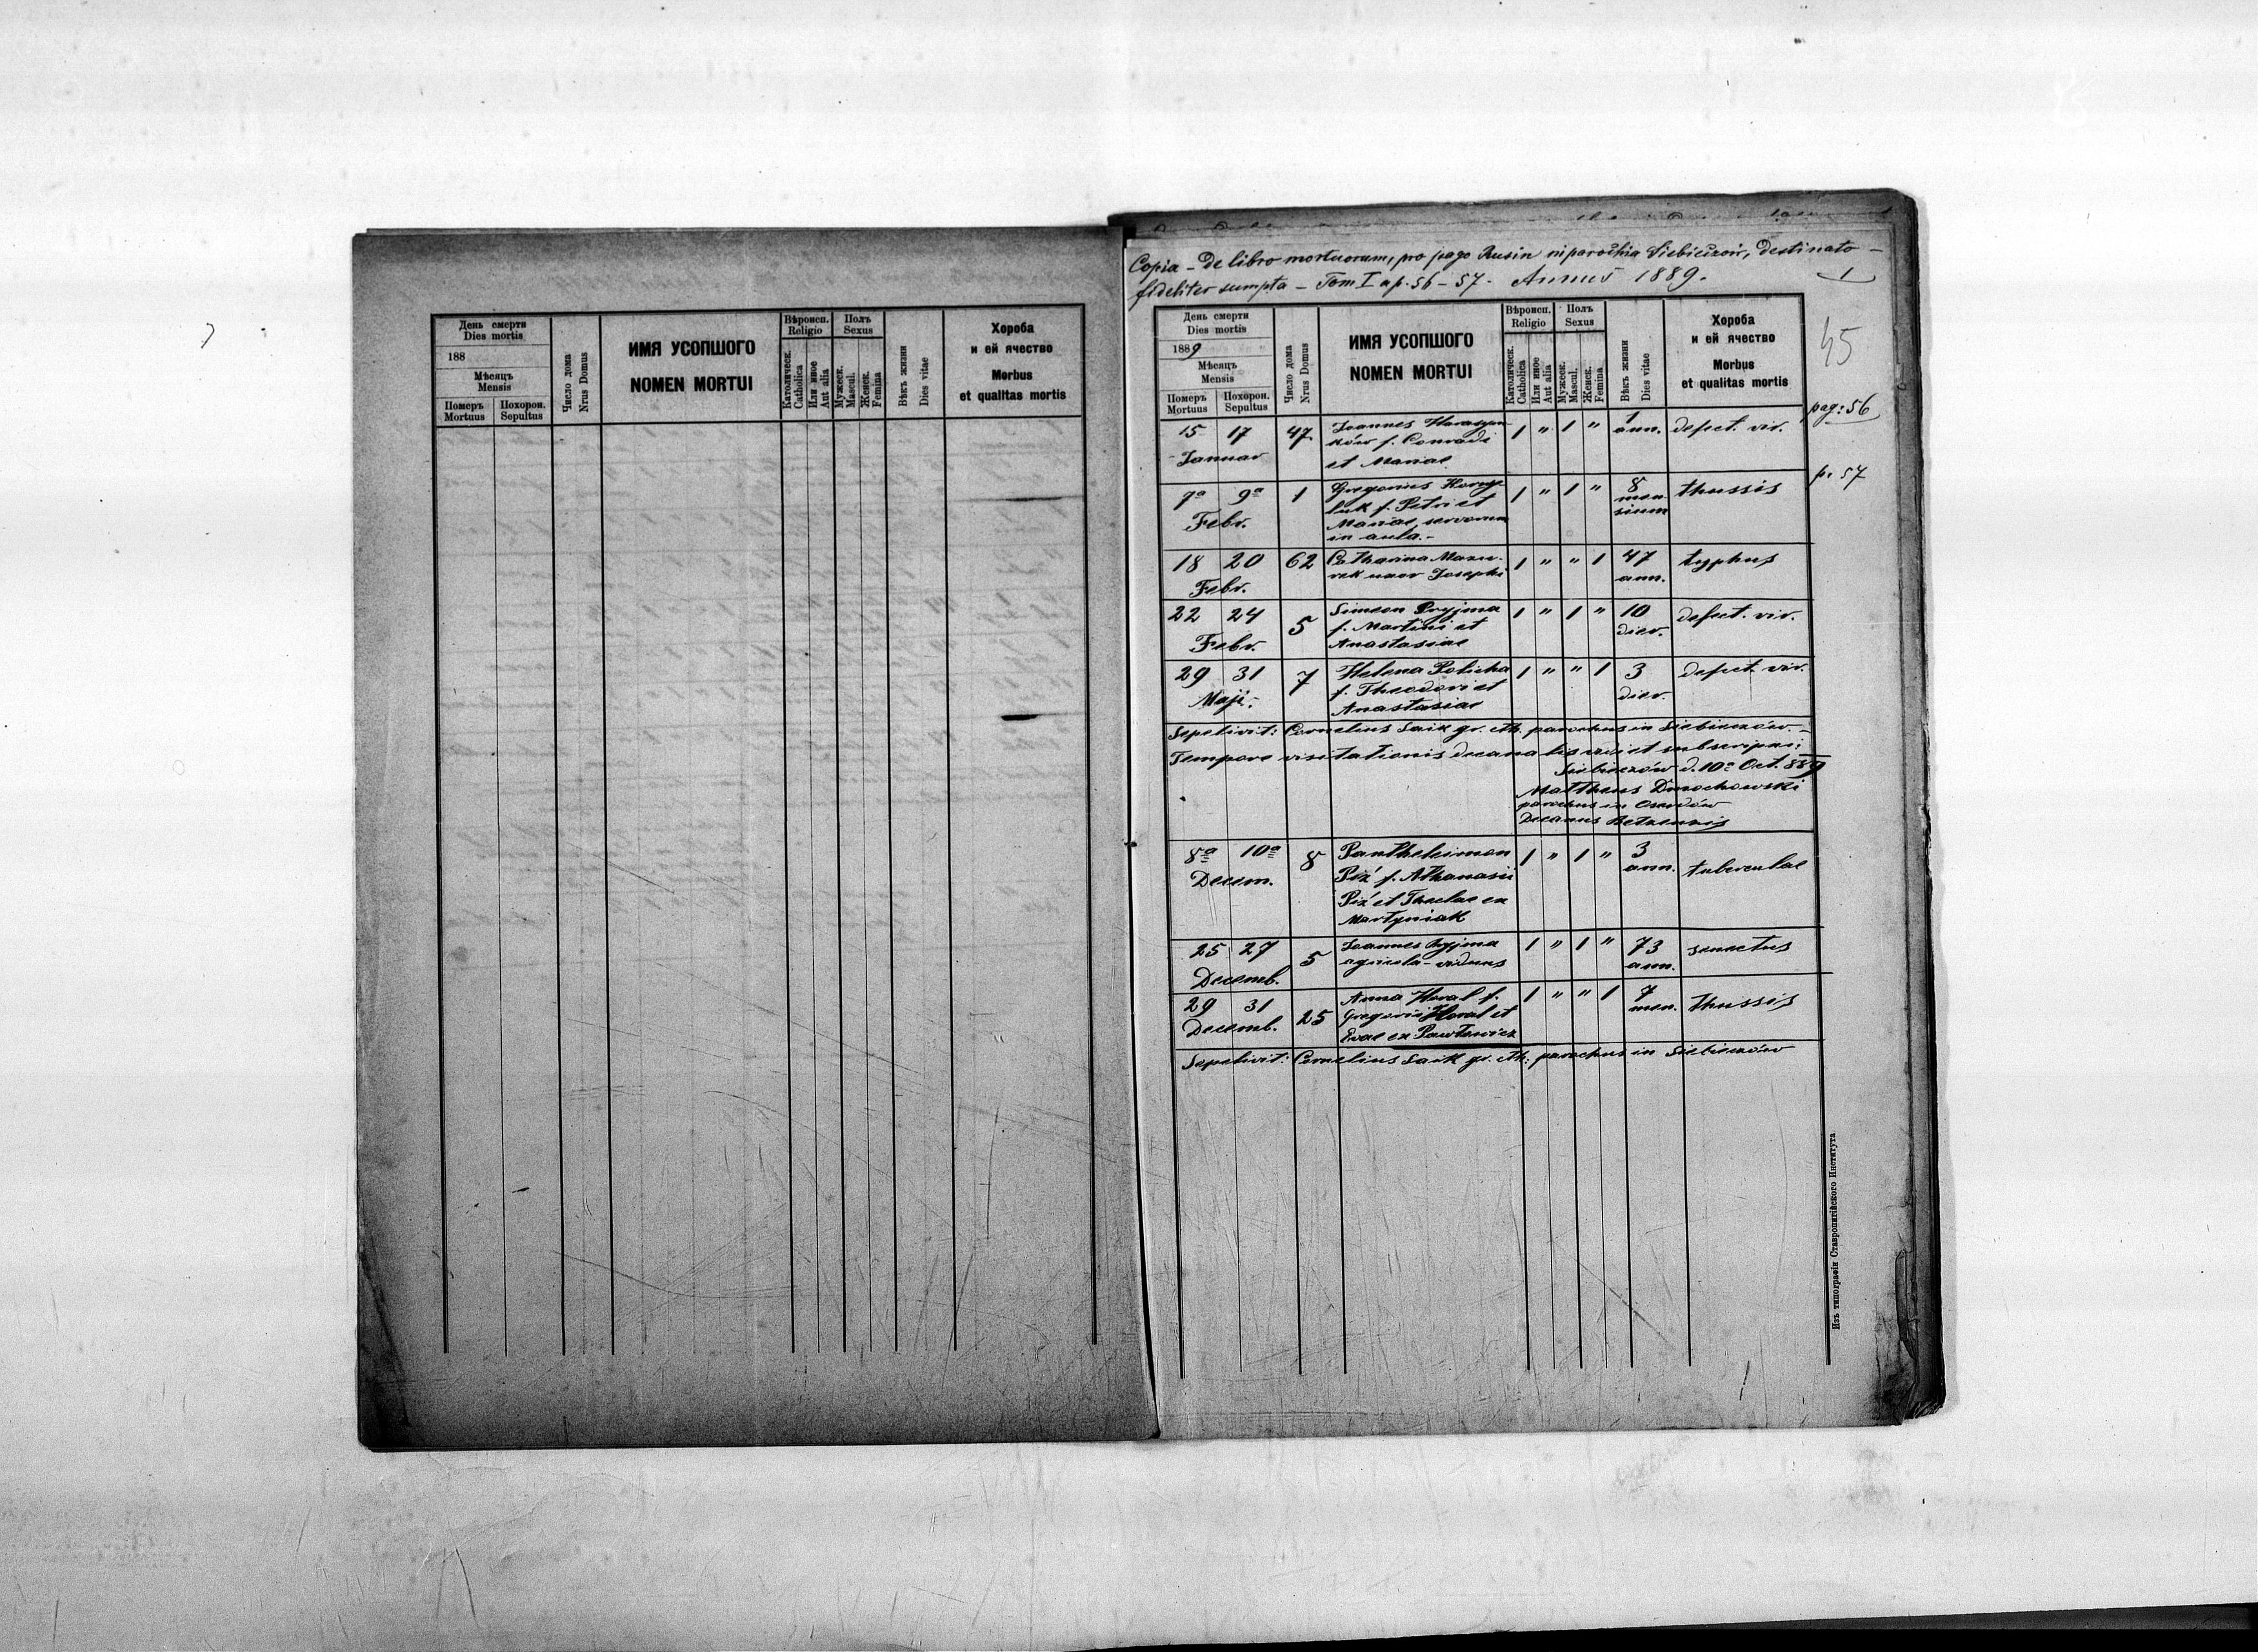 День смерти
Dies mortis
188
Мѣсяцъ
Mensis
Померъ
Mortuus
Похорон.
Sepultus
Число дома
Nrus Domus
ИМЯ УСОПШОГО
NOMEN MORTUI
Вѣроисп.
Religio
Католическ.
Catholica
Или иное
Aut alia
Полъ
Sexus
Мужеск.
Mascul.
Женск.
Femina
Вѣкъ жизни
Dies vitae
Хороба
и ей ячество
Morbus
et qualitas mortis
Copia - De libro mortuorum, pro pago Rusin in parochia Siebieczów, destinato -
fideliter sumpta - Tom I a p. 56 - 57. Annus 1889.
1
45
День смерти
Dies mortis
1889
Мѣсяцъ
Mensis
Померъ
Mortuus
Похорон.
Sepultus
Число дома
Nrus Domus
ИМЯ УСОПШОГО
NOMEN MORTUI
Вѣроисп.
Religio
Католическ.
Catholica
Или иное
Aut alia
Полъ
Sexus
Мужеск.
Mascul.
Женск.
Femina
Вѣкъ жизни
Dies vitae
Хороба
и ей ячество
Morbus
et qualitas mortis
pag: 56
15 17 47 Joannes 1 " 1 " 1 defect. vir.
Januar f. Conradi ann.
et Mariae
p. 57
7a 9a 1 Gregorius 1 " 1 " 8 thussis
Febr. f. Petri et men
Mariae, servorum sium
in aula.-
18 20 62 Catharina Mazu- 1 " " 1 47 typhus
Febr. rek uxor Josephi ann.
22 24 5 Simeon Pryjma 1 " 1 " 10 defect. vir.
Febr. f. Martini et dier.
Anastasiae
29 31 7 Helena Policha 1 " " 1 3 defect. vir.
Maji.- f. Theodori et dier.
Anastasiae
Sepelivit: Cornelius Saik gr. cth. parochus in Siebieczów. -
Tempore visitationis decanalis vidi et subscripsi:
Siebieczów d. 10a Oct. 889
Mattheus Dmochowski
parochus in
Decanus Betzensis
8a 10a 8 Pantheleimon 1 " 1 " 3 tuberculae
Decem. Piż f. Athanasii ann.
Piż et Theclae ex
Martyniak
25 27 5 Joannes Pryjma 1 " 1 " 73 senectus
Decemb. agricola - viduus ann.
29 31 25 Anna Horal f. 1 " " 1 7 thussis
Decemb. Gregorii Horal et men.
Evae ex Pawłowicz
Sepelivit: Cornelius Saik gr. cth: parochus in Siebieczów
Изъ типографіи Ставропигійского Института